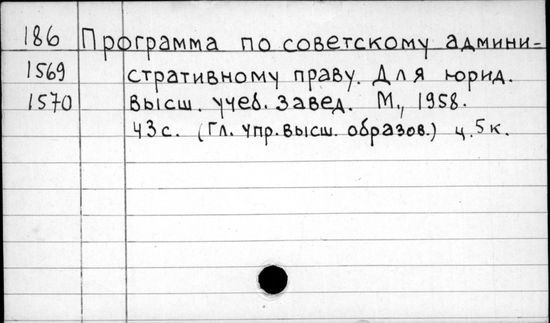 186 Программа по советскому админи-
1569 стративному праву. Для юрид.
1570 высш. учеб. завед. М., 1958.
43с. (Гл. упр. высш. образов.) ц. 5 к.